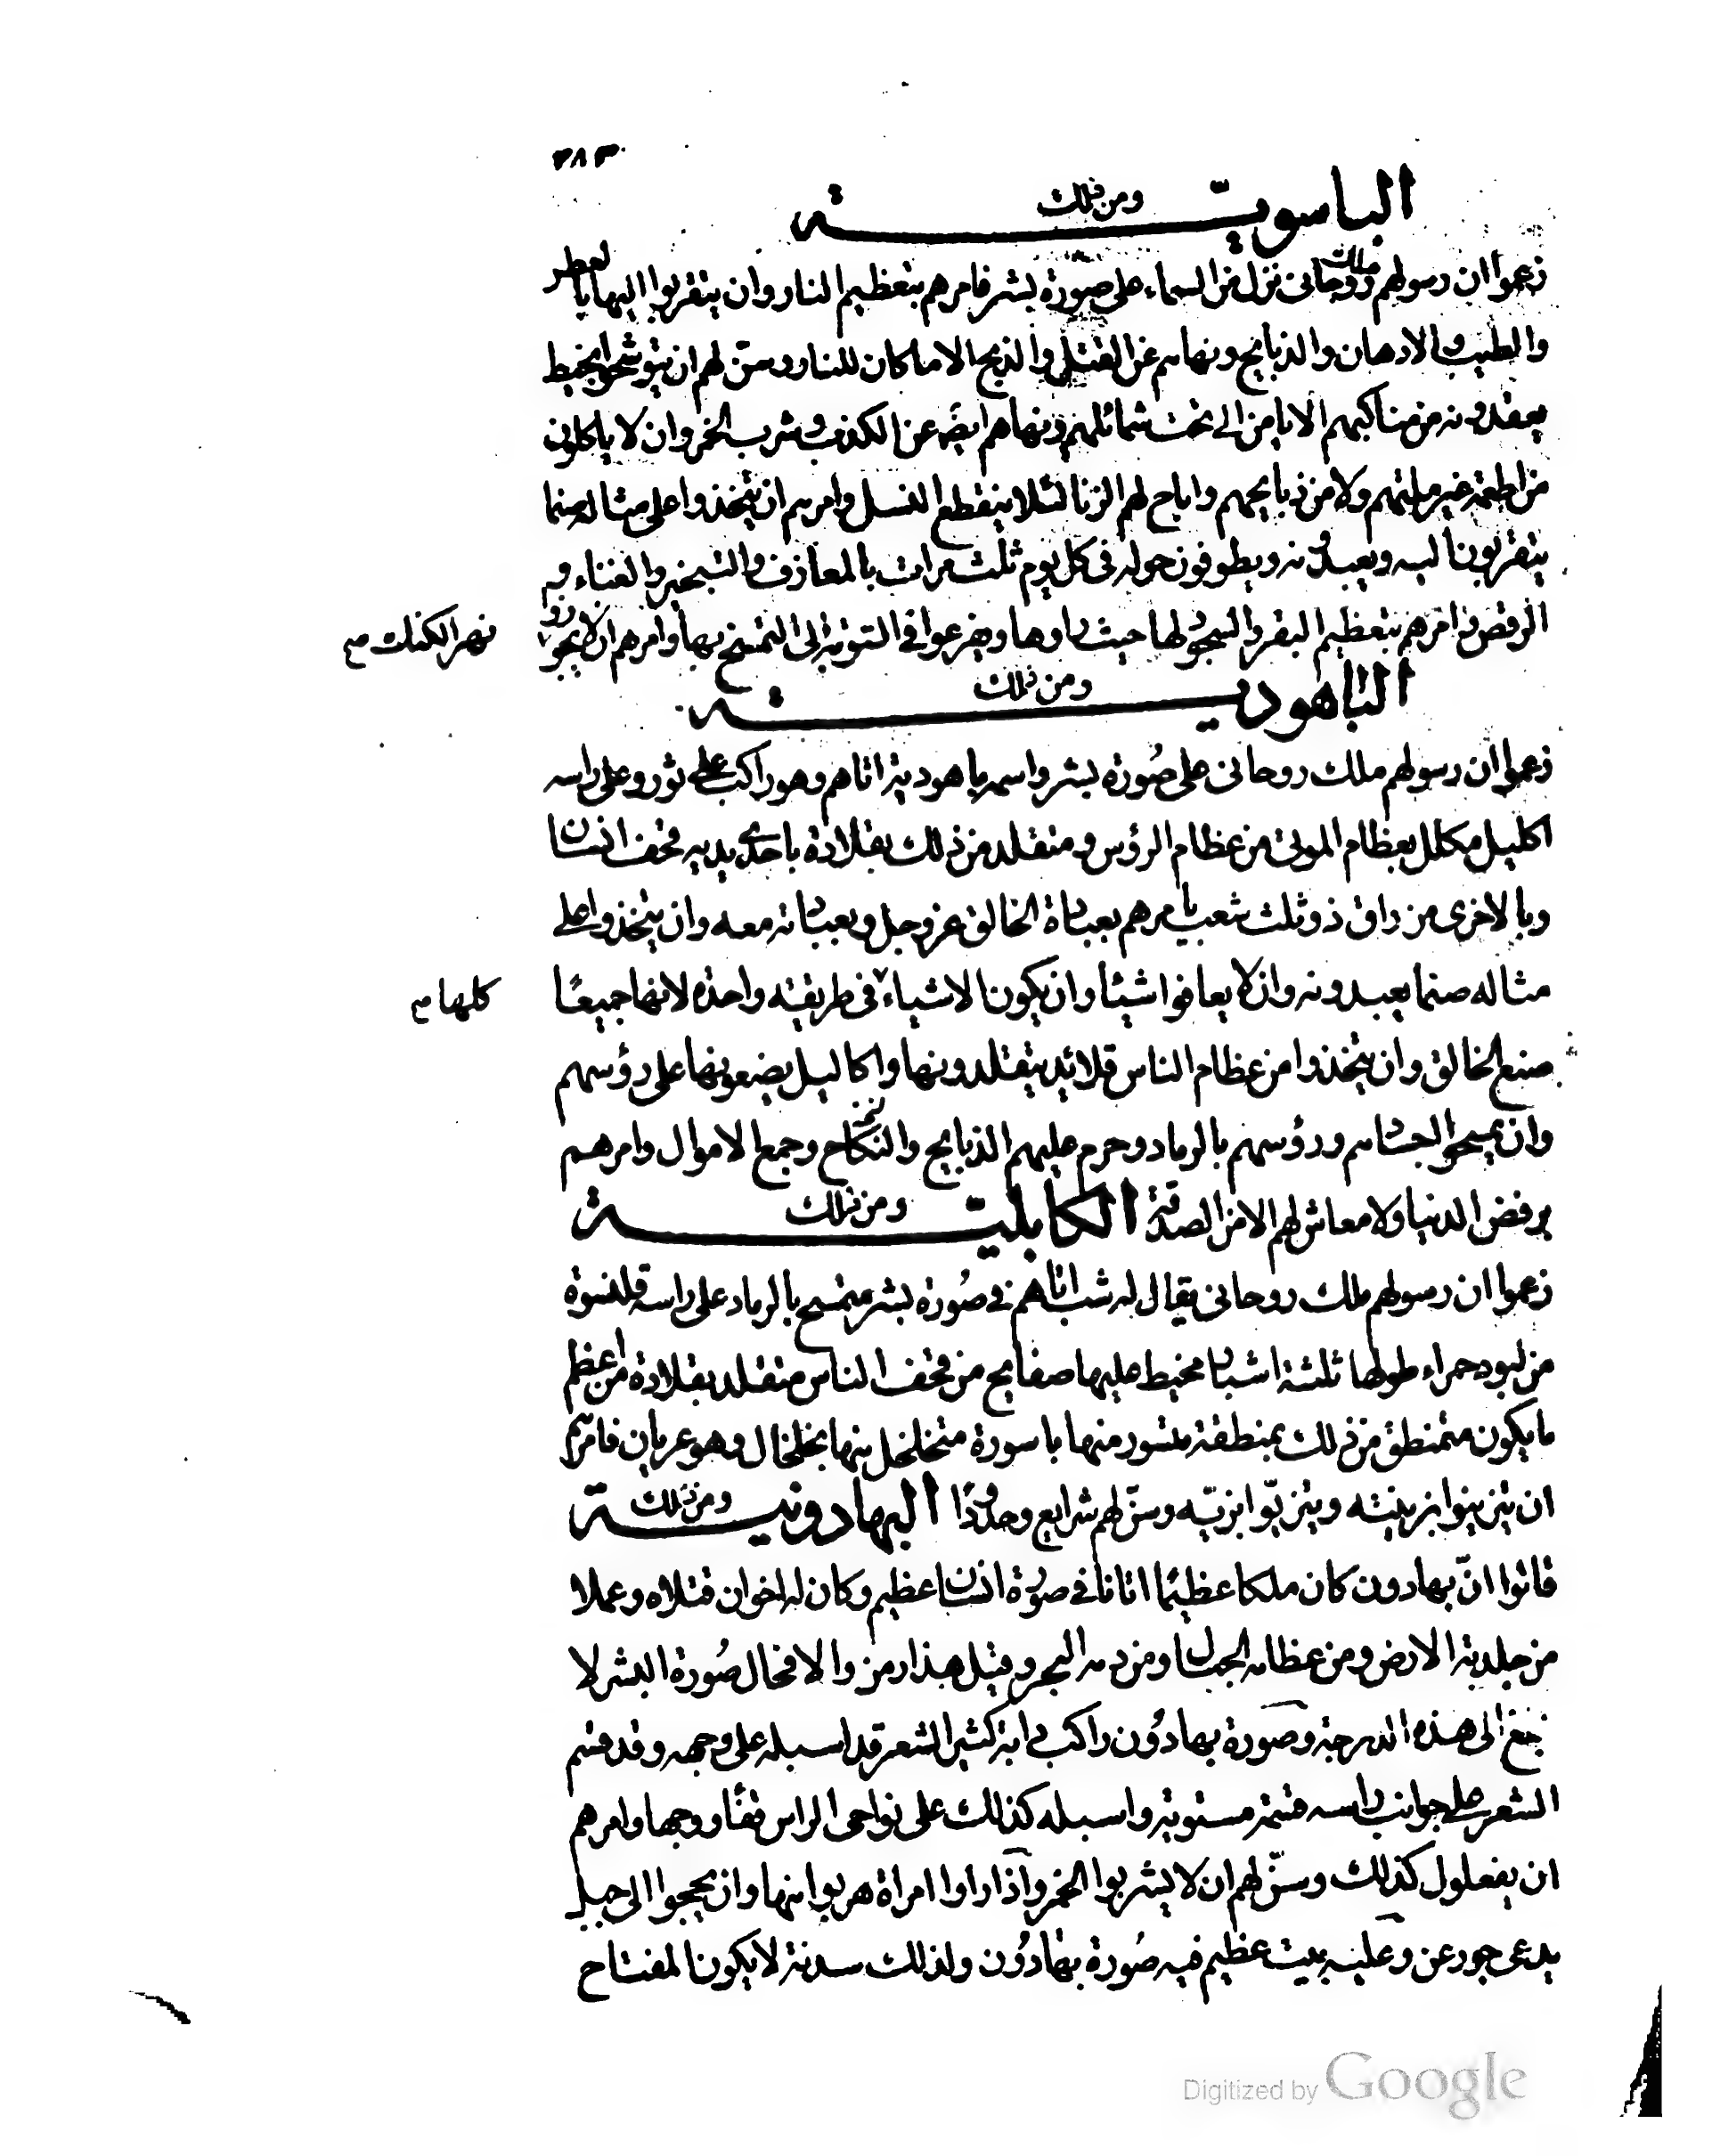 ٣٨٣
الباسويّة ومن ذلك
زعموا ان رسولهم ملك روحانى نزل من السماء على صورة بشر فامرهم بتعظيم النار وان يتقربوا اليها بالعطر
والطيب والادهان والذبايح ونهاهم عن القتل والذبح الا ما كان للنار وسنّ لهم ان يتوشحوا بخيط
يعقدونه من مناكبهم الايامن الى تحت شمائلهم ونهاهم ايضًا عن الكذب وشرب الخمر وان لا ياكلوا
من اطعمة غير ملتهم ولا من ذبايحهم واباح لهم الزنا لئلا ينقطع النسل وامرهم ان يتخذوا على مثاله صنما
يتقربون اليه ويعبدونه ويطوفون حوله فى كل يوم ثلث مرات بالمعازف والتبخير والغناء و
الرقص وامرهم بتعظيم البقر والسجود لها حيث راوها ويفزعوا فى التوبة الى التمسح بها وامرهم ان لا يجوزوا
نهر الكنك صح
الباهودية ومن ذلك
زعموا ان رسولهم ملك روحانى على صورة بشر واسمه باهودية اتاهم وهو راكب على ثور وعلى راسه
اكليل مكلل بعظام الموتى من عظام الرؤس ومتقلد من ذلك بقلادة باحدى يديه قحف انسان
وبالاخرى مزراق ذو ثلث شعب يامرهم بعبادة الخالق عز وجل وبعبادته معه وان يتخذوا على
مثاله صنما يعبدونه وان لا يعافوا شيئا وان يكون الاشياء فى طريقته واحدة لانها جميعًا
كلها صح
صنع الخالق وان يتخذوا من عظام الناس قلائد يتقلدونها واكاليل يضعونها على رؤسهم
وان يمسحوا اجسادهم ورؤسهم بالرماد وحرم عليهم الذبايح والنكاح وجمع الاموال وامرهم
برفض الدنيا ولا معاش لهم الا من الصدقة الكابلية ومن ذلك
زعموا ان رسولهم ملك روحانى يقال له شب اتاهم فى صورة بشر متمسح بالرماد على راسه قلنسوة
من لبود حمراء طولها ثلثة اشبار مخيط عليها صفايح من قحف الناس متقلد بقلادة من اعظم
ما يكون متمنطق من ذلك بمنطقة متسور منها باسورة متخلخل منها بخلخال وهو عريان فامرهم
ان يتزينوا بزينته ويتزيّوا بزيّه وسنّ لهم شرايع وحدودًا البهادونية ومن ذلك
قالوا انّ بهادون كان ملكا عظيمًا اتانا فى صورة انسان عظيم وكان له اخوان قتلاه وعملا
من جلدته الارض ومن عظامه الجبال ومن دمه البحر وقيل هذا رمز والا فحال صورة البشر لا
تبلغ الى هذه الدرجة وصورة بهادُون راكب دابة كثير الشعر قد اسبله على وجهه وقد قسم
الشعر على جوانب راسه قسمة مستوية واسبله كذلك على نواحى الراس قفًا ووجها وامرهم
ان يفعلوا كذلك وسنّ لهم ان لا يشربوا الخمر واذا راوا امراة هربوا منها وان يحجوا الى جبل
يدعى جورعن وعليه بيت عظيم فيه صُورة بهادُون ولذلك سدنة لا يكون المفتاح
Digitized by Google